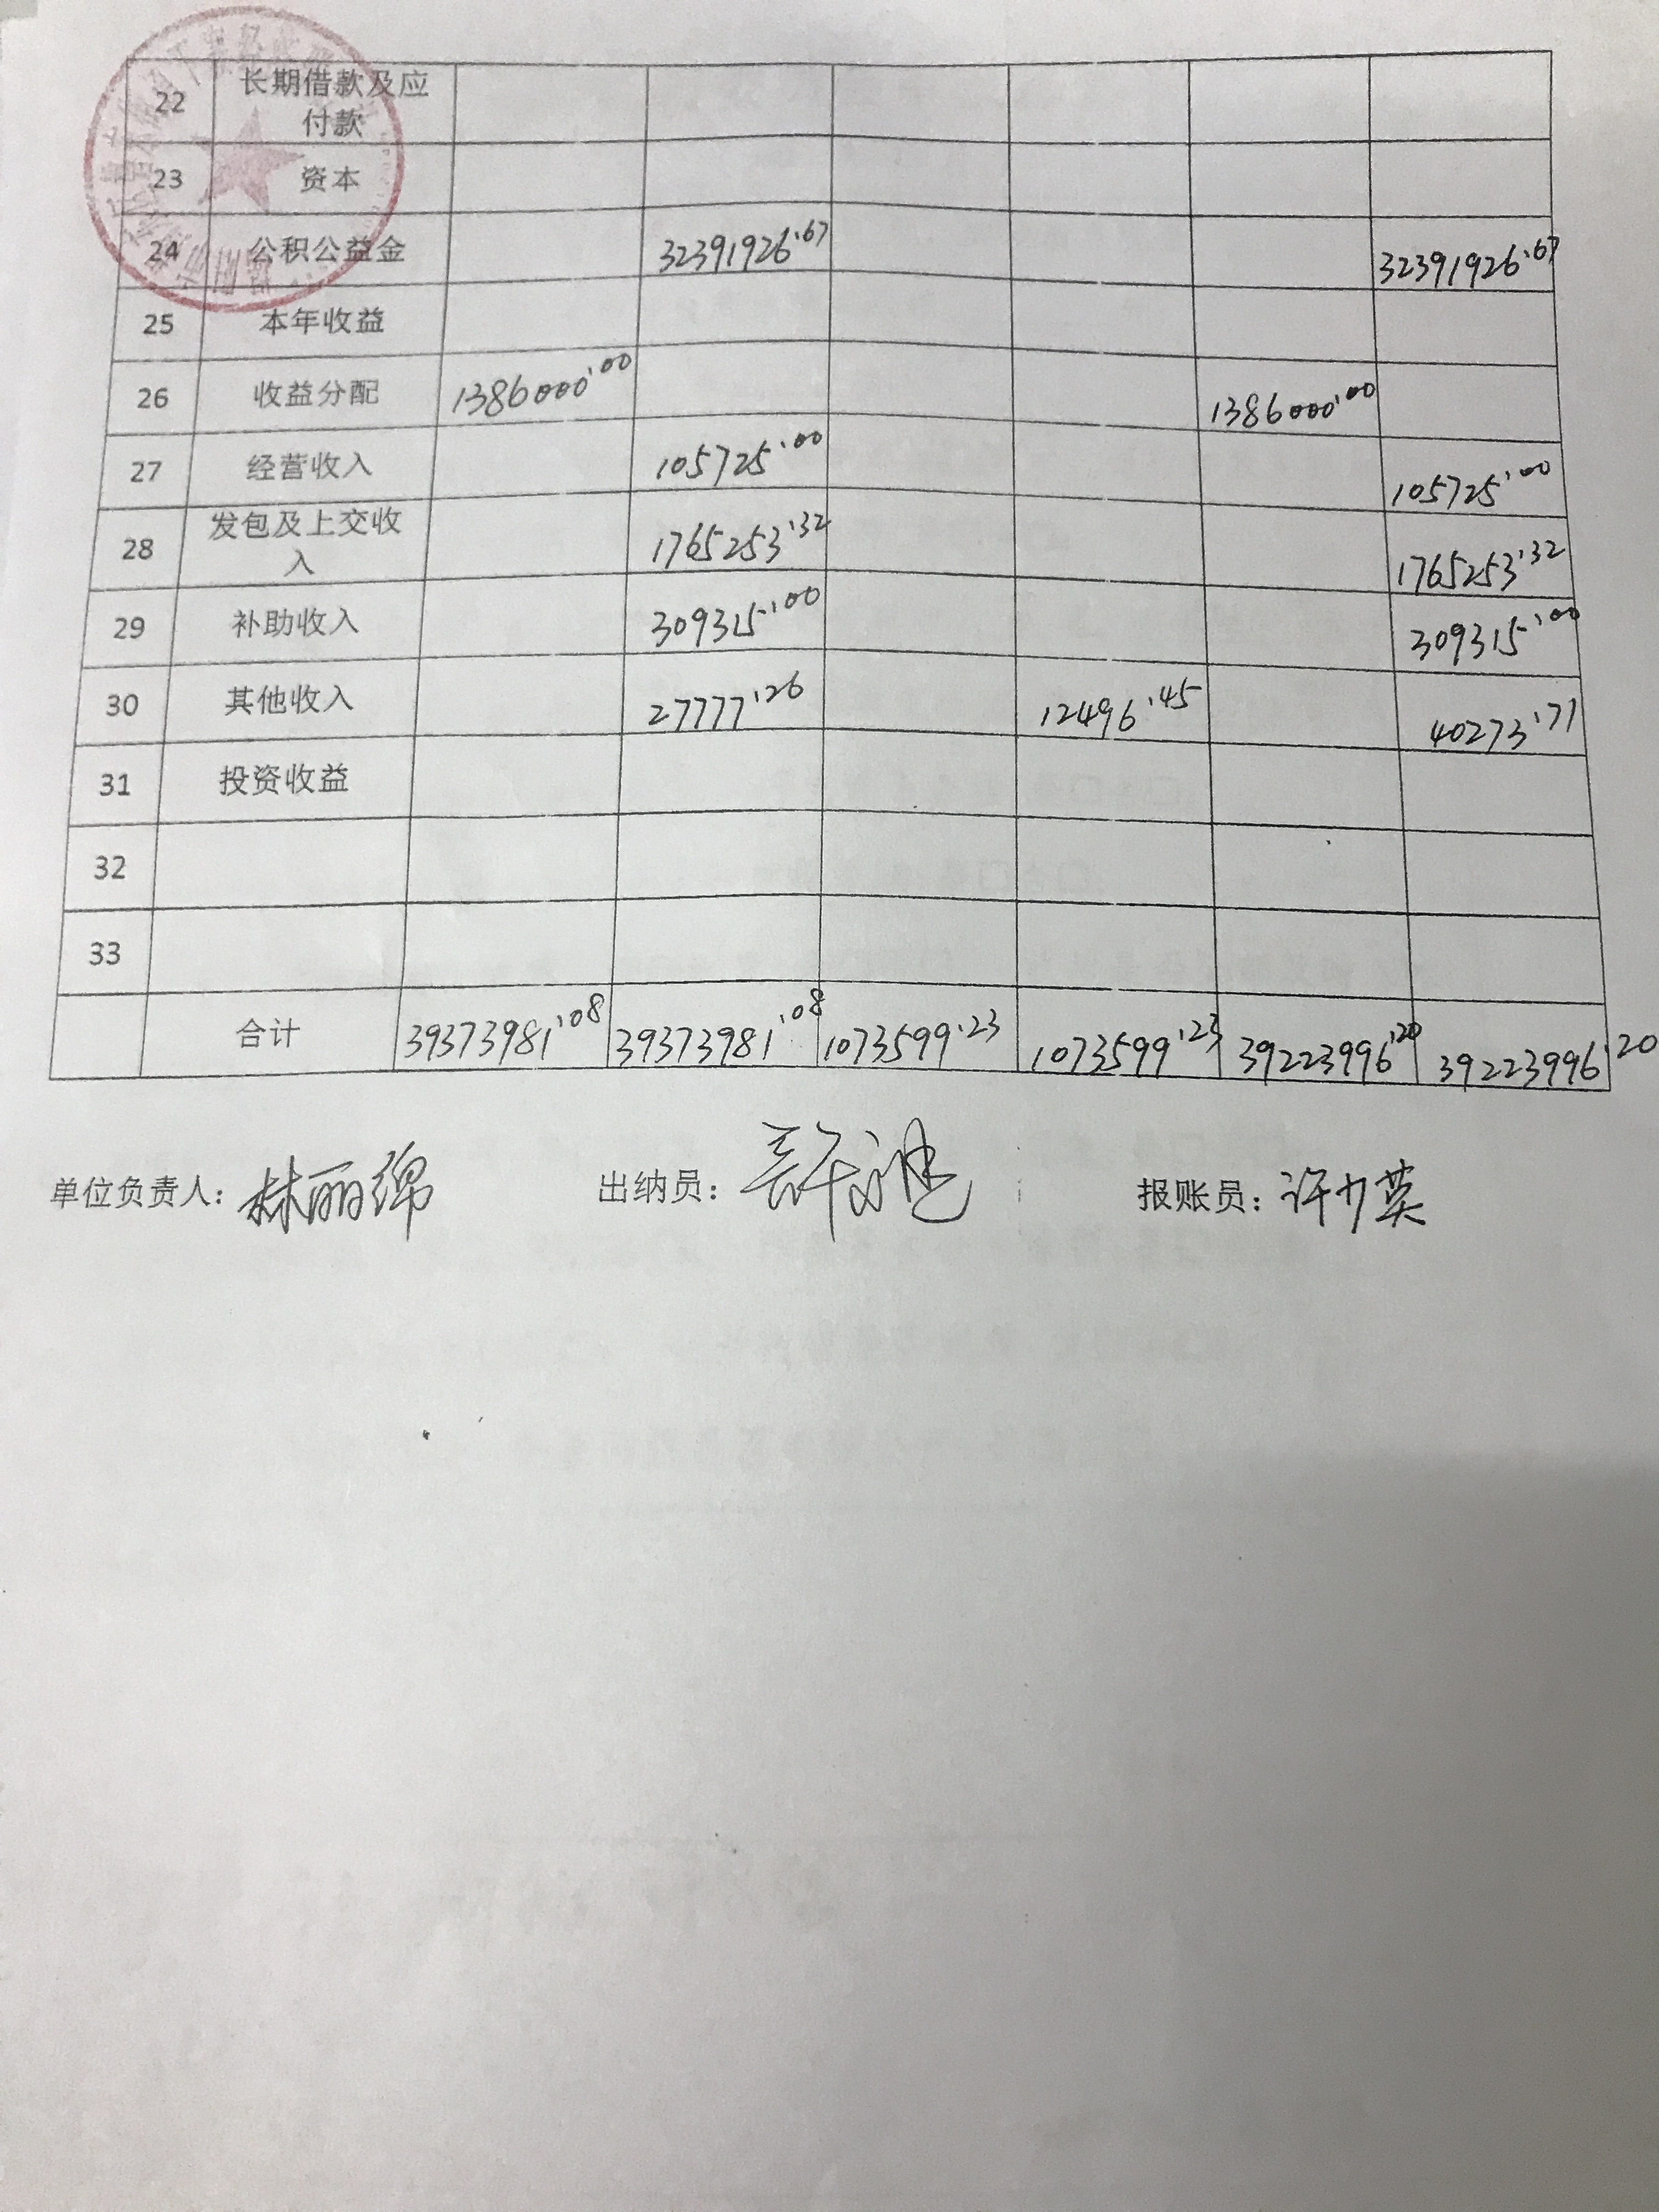 22 长期借款及应
付款
23 资本
24 公积公益金 32391926.67 32391926.67
25 本年收益
26 收益分配 1386000.00 1386000.00
27 经营收入 105725.00 105725.00
28 发包及上交收
入 1765253.32 1765253.32
29 补助收入 309315.00 309315.00
30 其他收入 27777.26 12496.45 40273.71
31 投资收益
32
33
合计 39373981.08 39373981.08 1073599.23 1073599.23 39223996.20 39223996.20
单位负责人：林丽绵 出纳员：许迪 报账员：许少英